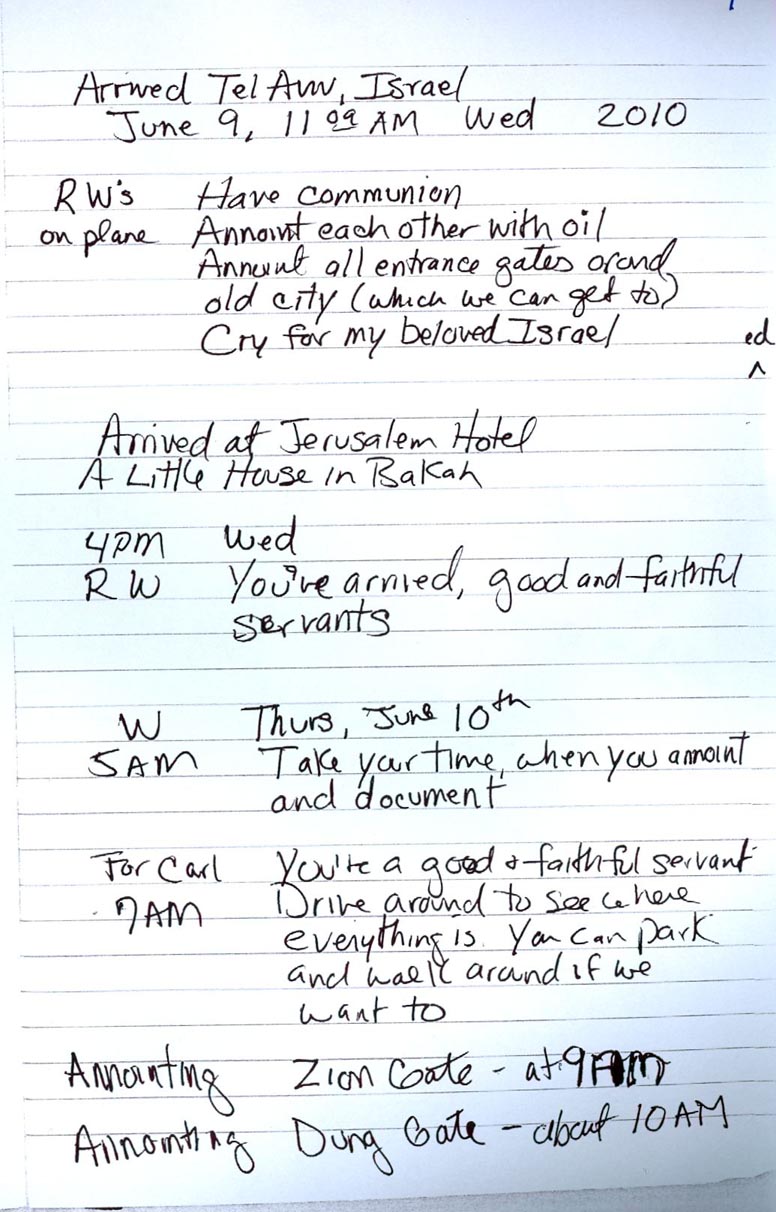 Arrived Tel Aviv, Israel
June 9, 11 09 AM Wed 2010
RW's Have communion
on plane Annoint each other with oil
Annount all entrance gates orand
old city (which we can get to)
Cry for my beloved Israel
ed
^
Arrived at Jerusalem Hotel
A Little House in Bakah
4PM Wed
RW You've arrived, good and faithful
servants
W Thurs, June 10th
5AM Take your time, when you annoint
and document
For Carl You're a good & faithful servant
7AM Drive around to see where
everything is. You can park
and walk around if we
want to
Annointing Zion Gate - at 9AM
Annointing Dung Gate - about 10AM